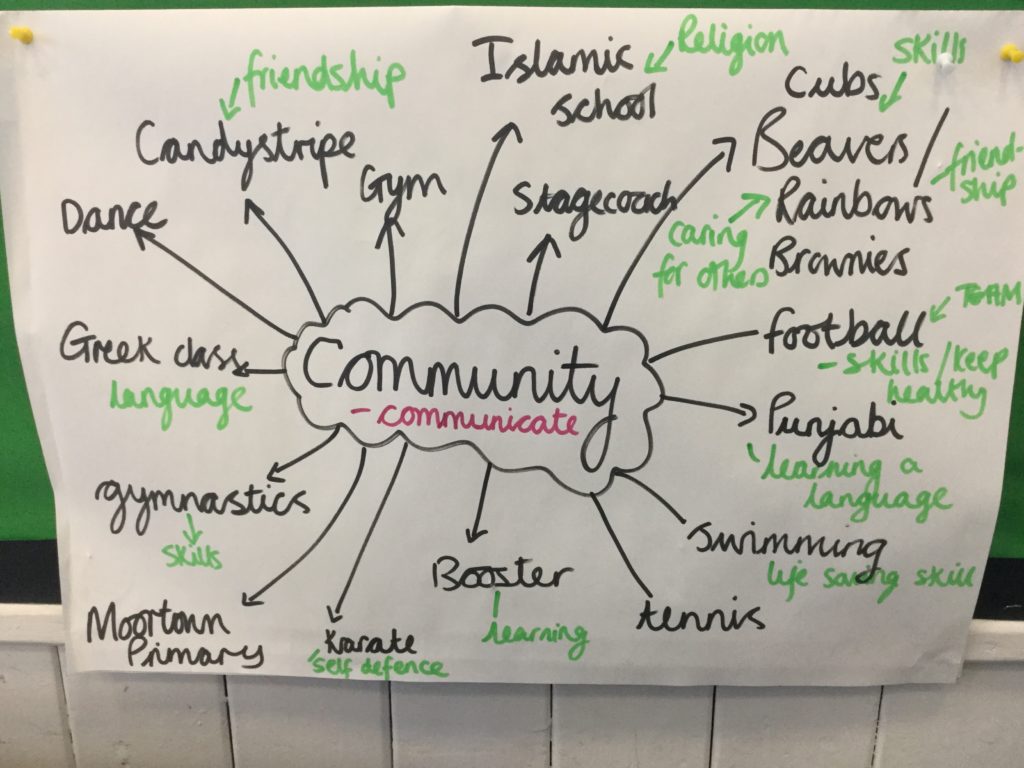 friendship
Candystripe
Dance
Gym
Islamic
school
Religion
Stagecoach
skills
Cubs
Beavers /
friend-
ship
Rainbows
caring
for others
Brownies
Greek class
language
Community
- communicate
football
TEAM
- skills / keep
healthy
Punjabi
learning a
language
gymnastics
skills
swimming
life saving skill
Booster
learning
tennis
Moortown
Primary
Karate
self defence